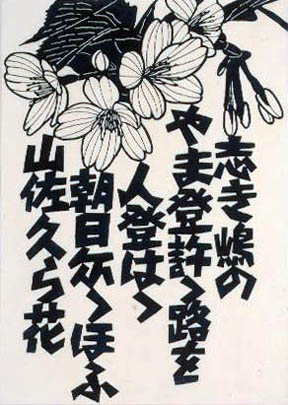 志き嶋の
やま登許ゝ路を
人登はゝ
朝日尓ゝほふ
山佐久ら花